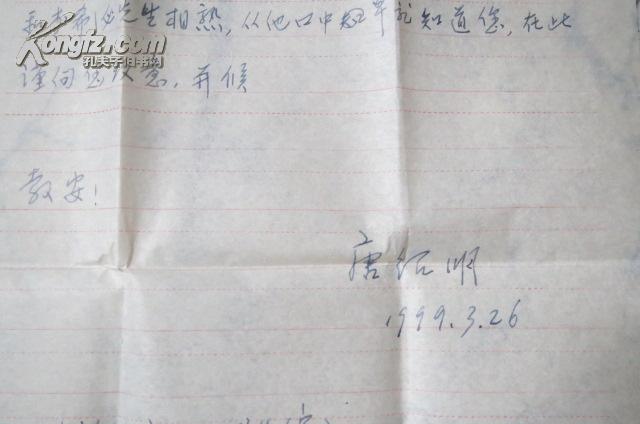 先生相熟，从他口中早就知道您，在此
谨向您致意，并候
教安！
唐绍明
1999.3.26
孔夫子旧书网